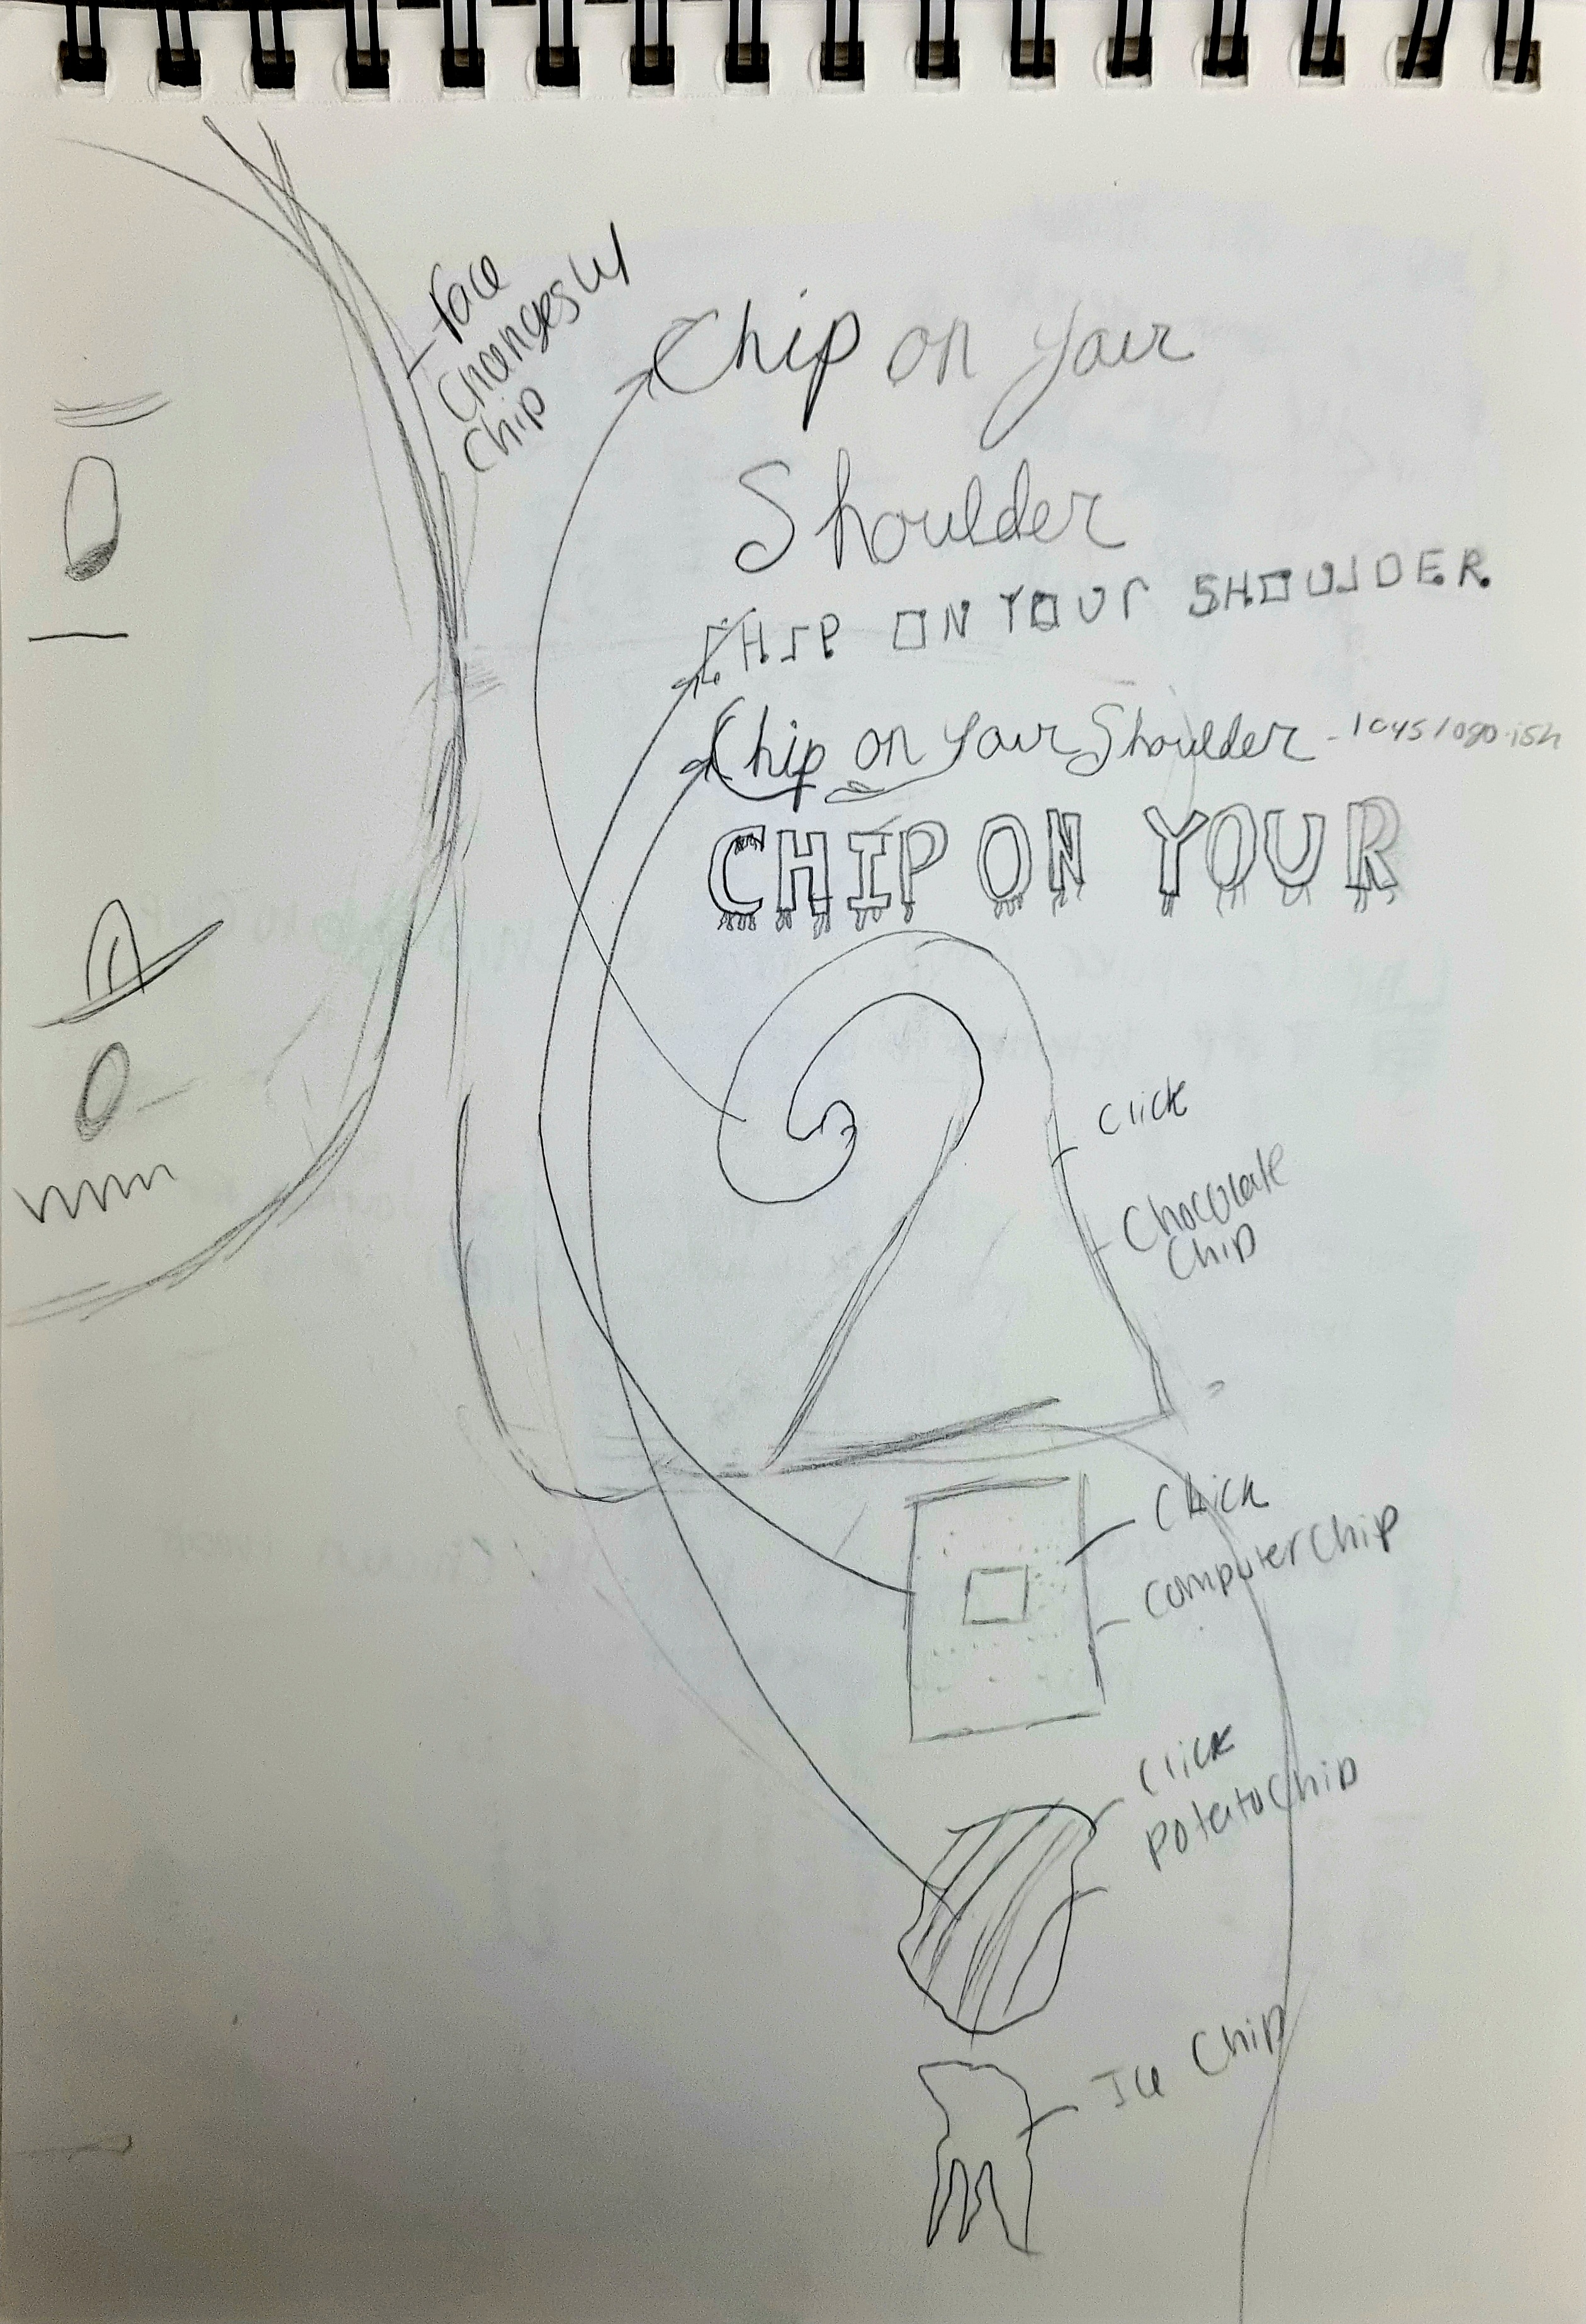 Face
Changes w/
Chip
Chip on your
Shoulder
CHIP ON YOUR SHOULDER
Chip on your Shoulder - lays logo-ish
CHIP ON YOUR
Click
Chocolate
Chip
Click
Computer Chip
Click
Potato Chip
Ice Chip